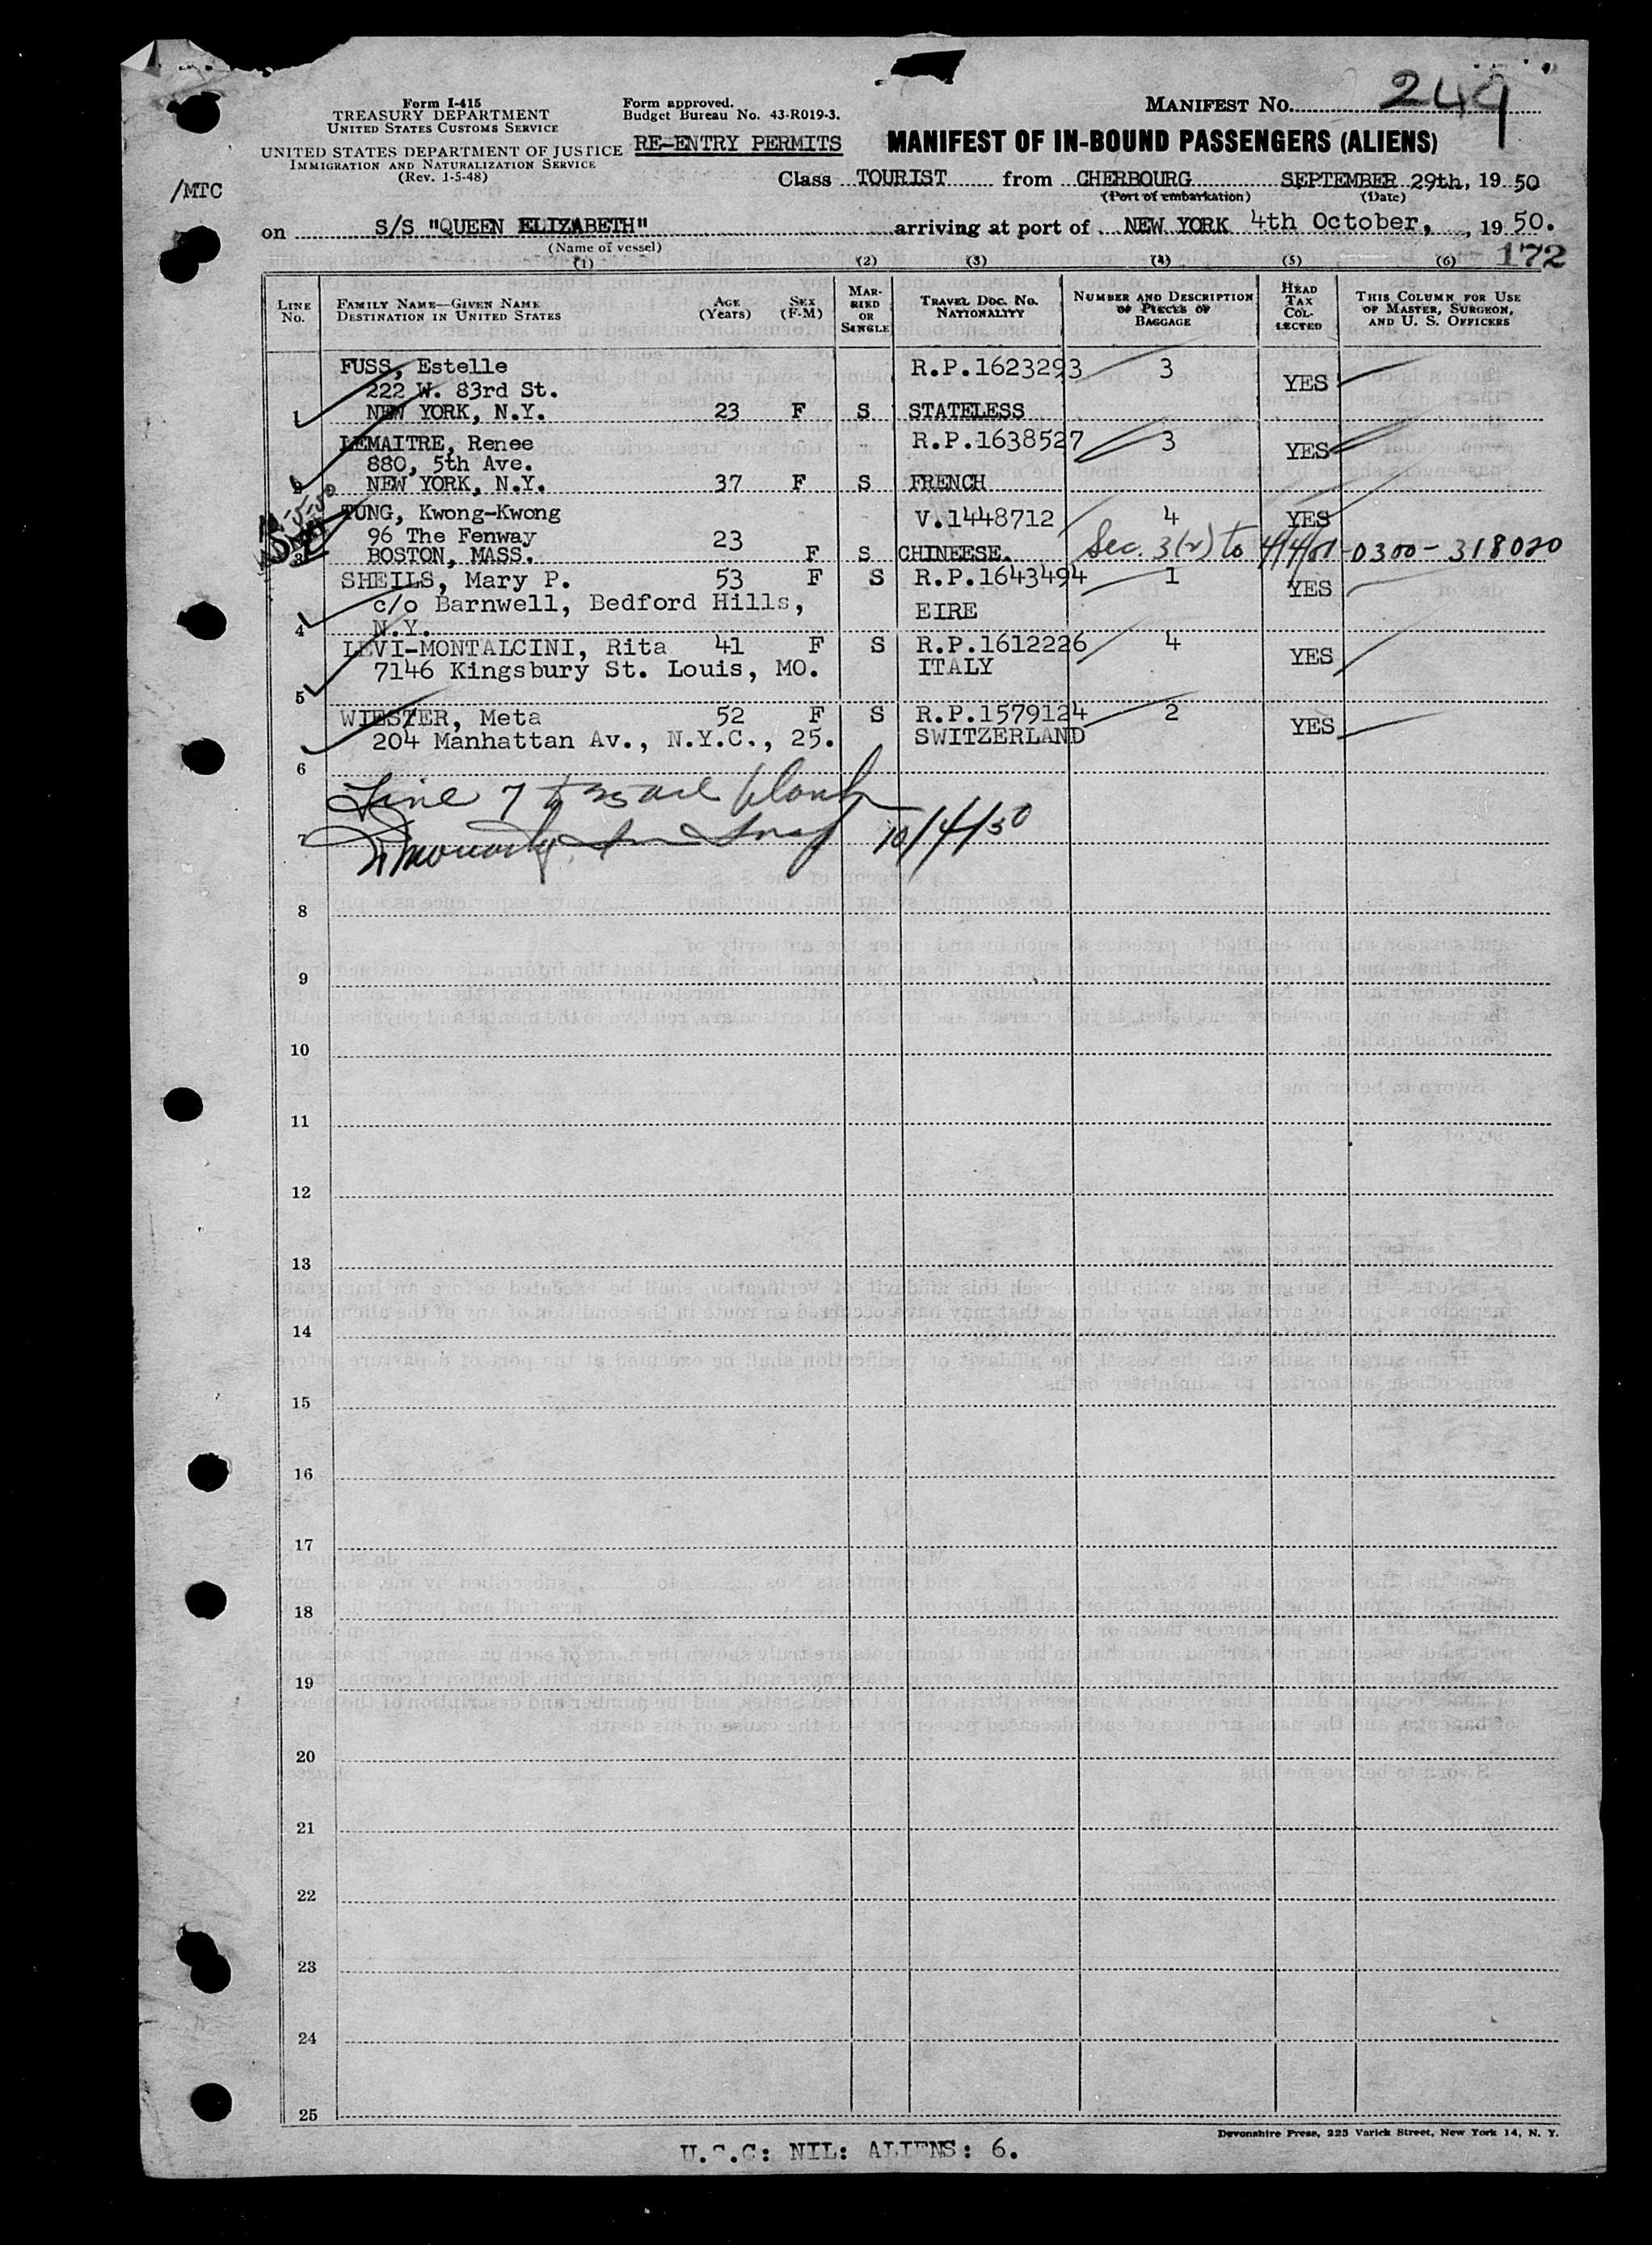 Form I-415
TREASURY DEPARTMENT
UNITED STATES CUSTOMS SERVICE
UNITED STATES DEPARTMENT OF JUSTICE
IMMIGRATION AND NATURALIZATION SERVICE
(Rev. 1-5-48)
Form approved.
Budget Bureau No. 43-R019-3.
RE-ENTRY PERMITS
MANIFEST NO. 249
MANIFEST OF IN-BOUND PASSENGERS (ALIENS)
/MTC
Class TOURIST from CHERBOURG SEPTEMBER 29th, 19 50
(Port of embarkation) (Date)
on S/S "QUEEN ELIZABETH" arriving at port of NEW YORK 4th October, , 19 50.
(Name of vessel)
172
(1) (2) (3) (4) (5) (6)
LINE No. FAMILY NAME—GIVEN NAME DESTINATION IN UNITED STATES AGE (Years) SEX (F-M) MARRIED OR SINGLE TRAVEL DOC. NO. NATIONALITY NUMBER AND DESCRIPTION OF PIECES OF BAGGAGE HEAD TAX COLLECTED THIS COLUMN FOR USE OF MASTER, SURGEON, AND U. S. OFFICERS
FUSS, Estelle R.P.1623293 3 YES
222 W. 83rd St.
1 NEW YORK, N.Y. 23 F S STATELESS
LEMAITRE, Renee R.P.1638527 3 YES
880, 5th Ave.
2 NEW YORK, N.Y. 37 F S FRENCH
TUNG, Kwong-Kwong V.1448712 4 YES
96 The Fenway 23
3 BOSTON, MASS. F S CHINEESE. Sec. 3(2) to 4/4/51-0300-318020
SHEILS, Mary P. 53 F S R.P.1643494 1 YES
c/o Barnwell, Bedford Hills, EIRE
4 N.Y.
LEVI-MONTALCINI, Rita 41 F S R.P.1612226 4 YES
7146 Kingsbury St. Louis, MO. ITALY
5
WIESTER, Meta 52 F S R.P.1579124 2 YES
204 Manhattan Av., N.Y.C., 25. SWITZERLAND
6
Line 7 to 25 are blank
7 10/4/50
8
9
10
11
12
13
14
15
16
17
18
19
20
21
22
23
24
25
Devonshire Press, 225 Varick Street, New York 14, N. Y.
U.S.C: NIL: ALIENS: 6.